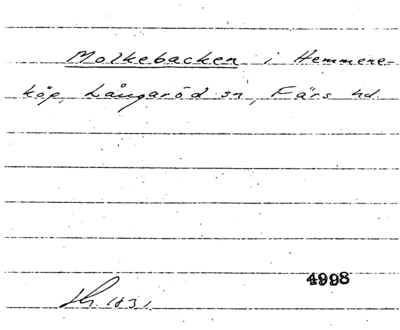 Molkebacken i Hemmene-
köp, Långaröd sn, Färs hd.
4998
1831